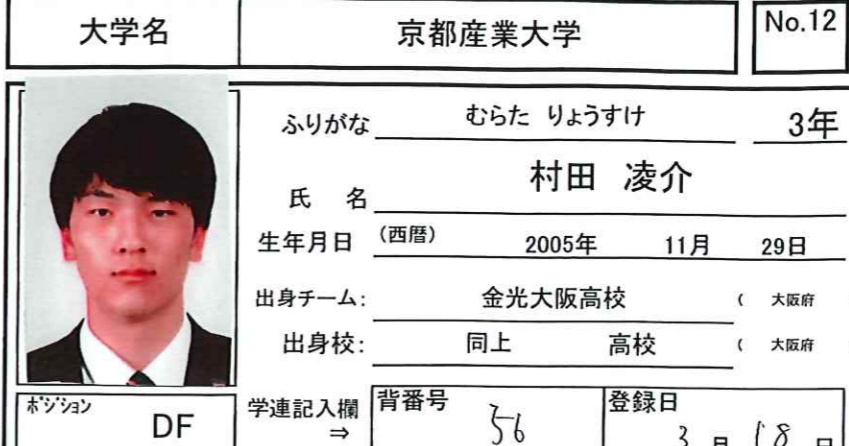 大学名 京都産業大学 No.12
ふりがな むらた りょうすけ 3年
氏 名 村田 凌介
生年月日 (西暦) 2005年 11月 29日
出身チーム: 金光大阪高校 ( 大阪府
出身校: 同上 高校 ( 大阪府
ポジション DF 学連記入欄 ⇒ 背番号 56 登録日 3 月 18 日